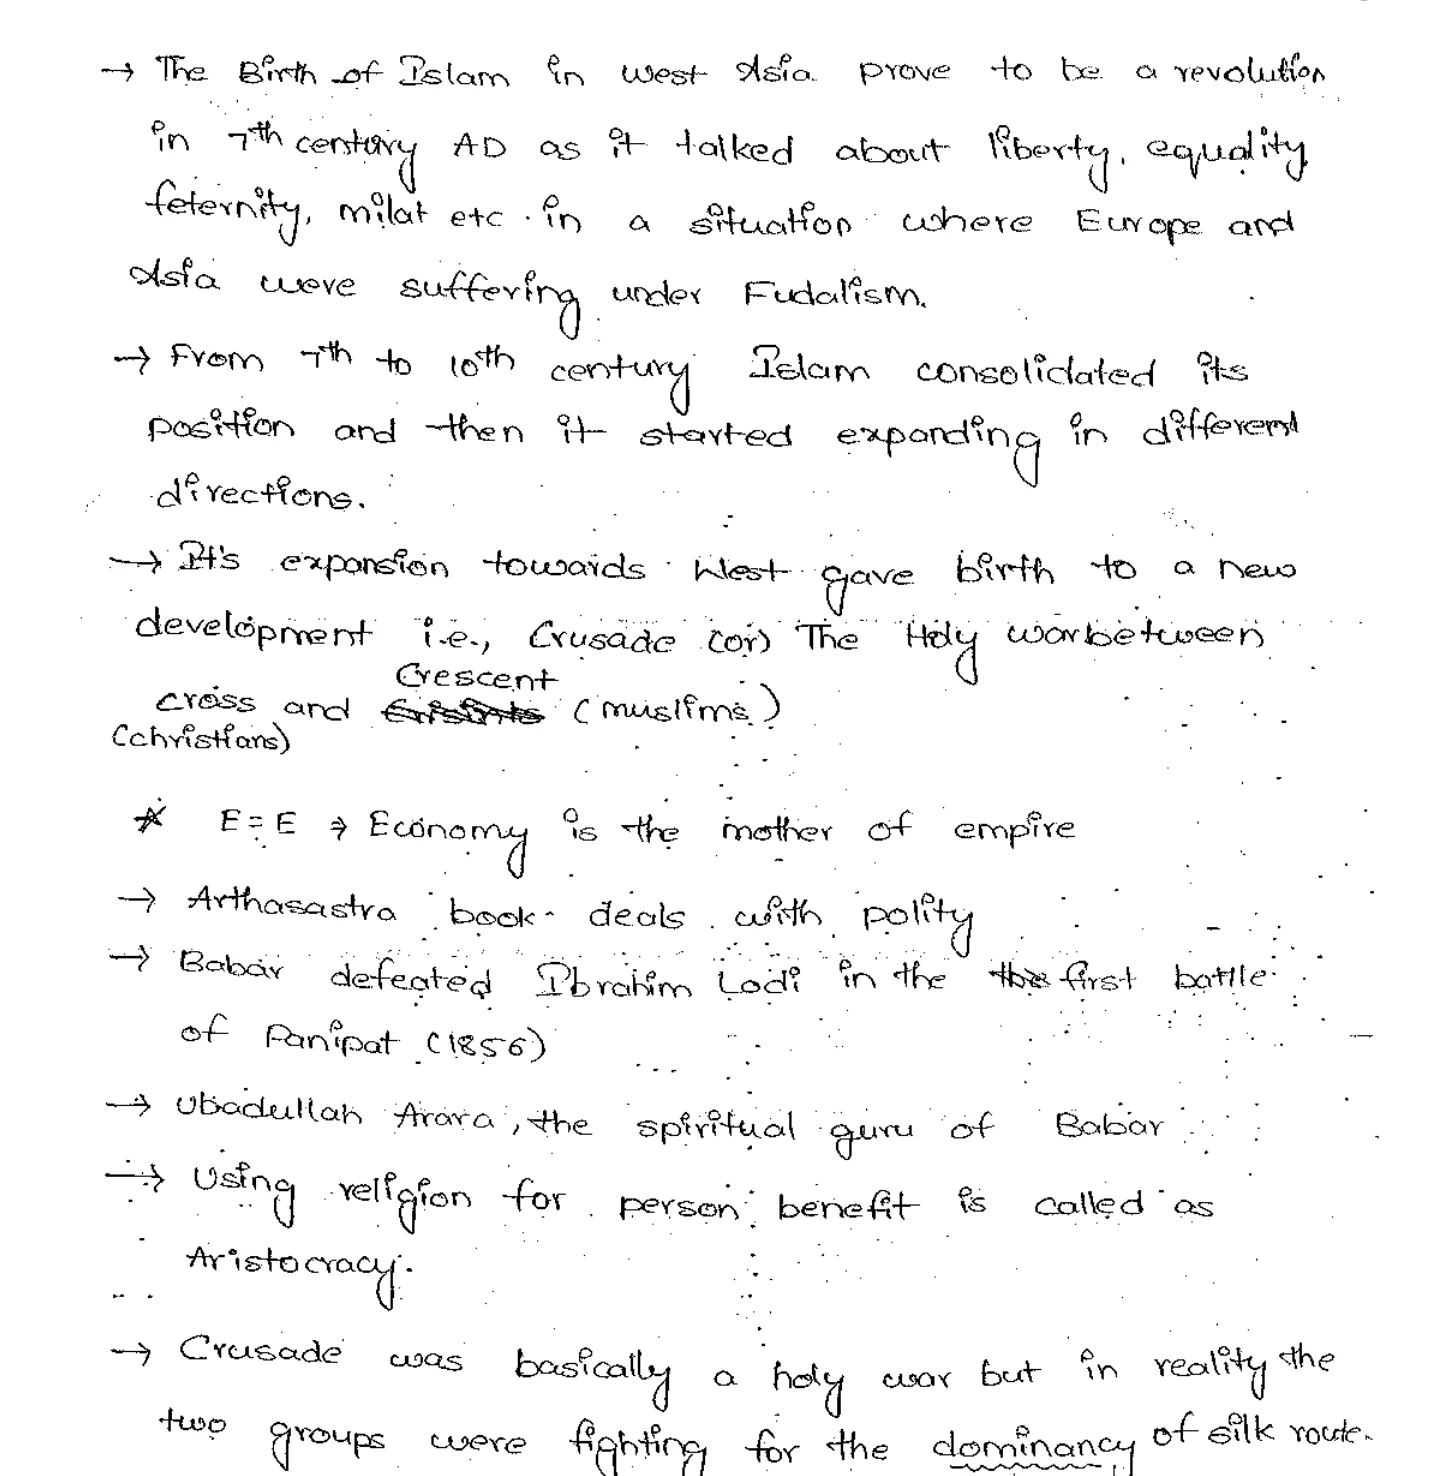 → The Birth of Islam in west Asia prove to be a revolution
in 7th century AD as it talked about liberty, equality
feternity, milat etc. in a situation where Europe and
Asia were suffering under Fudalism.
→ From 7th to 10th century Islam consolidated its
position and then it started expanding in different
directions.
→ It's expansion towards West gave birth to a new
development i.e., Crusade (or) The Holy war between
Crescent
cross and (muslims)
(christians)
* E = E ⇒ Economy is the mother of empire
→ Arthasastra book deals with polity
→ Babar defeated Ibrahim Lodi in the the first battle
of Panipat (1856)
→ Ubadullah Arara, the spiritual guru of Babar
→ Using religion for person benefit is called as
Aristocracy.
→ Crusade was basically a holy war but in reality the
two groups were fighting for the dominancy of silk route.